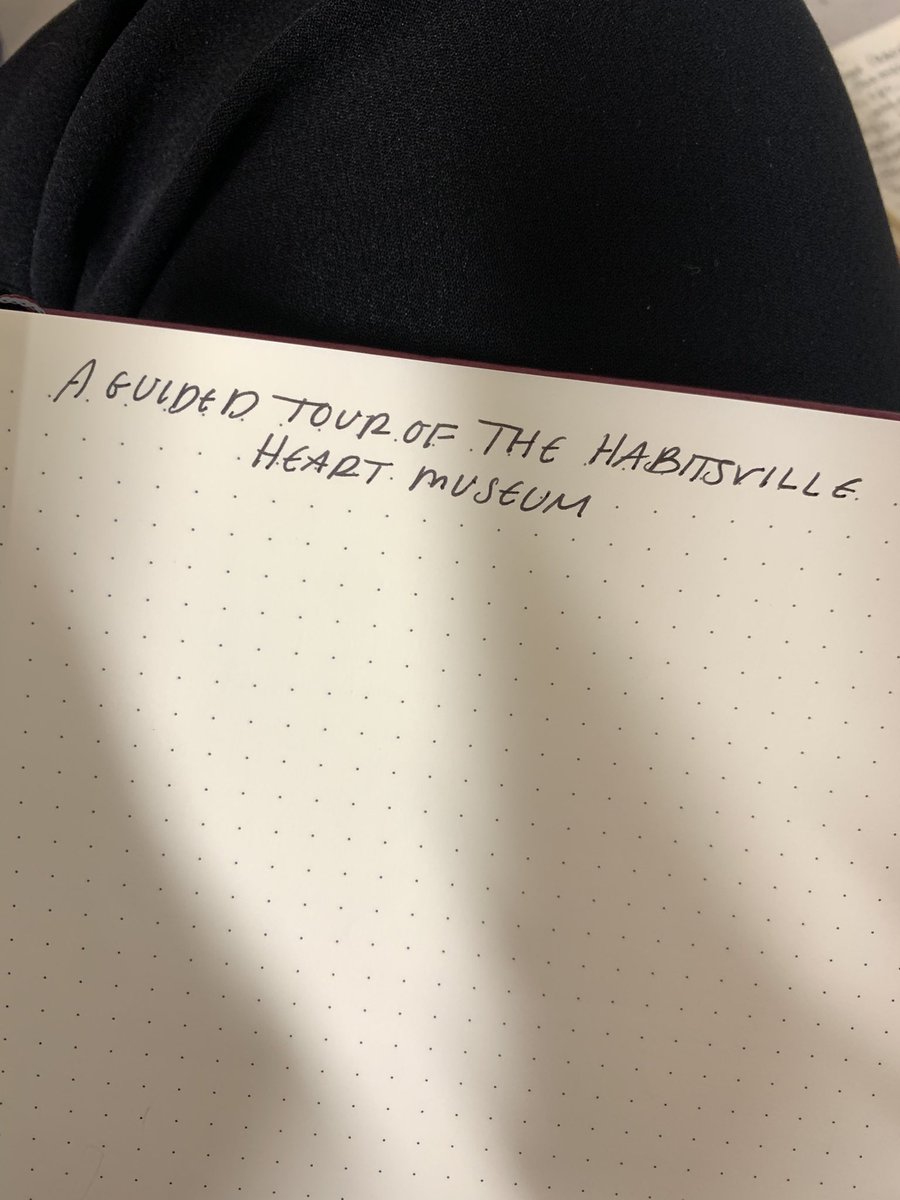 A GUIDED TOUR OF THE HABITSVILLE
HEART MUSEUM